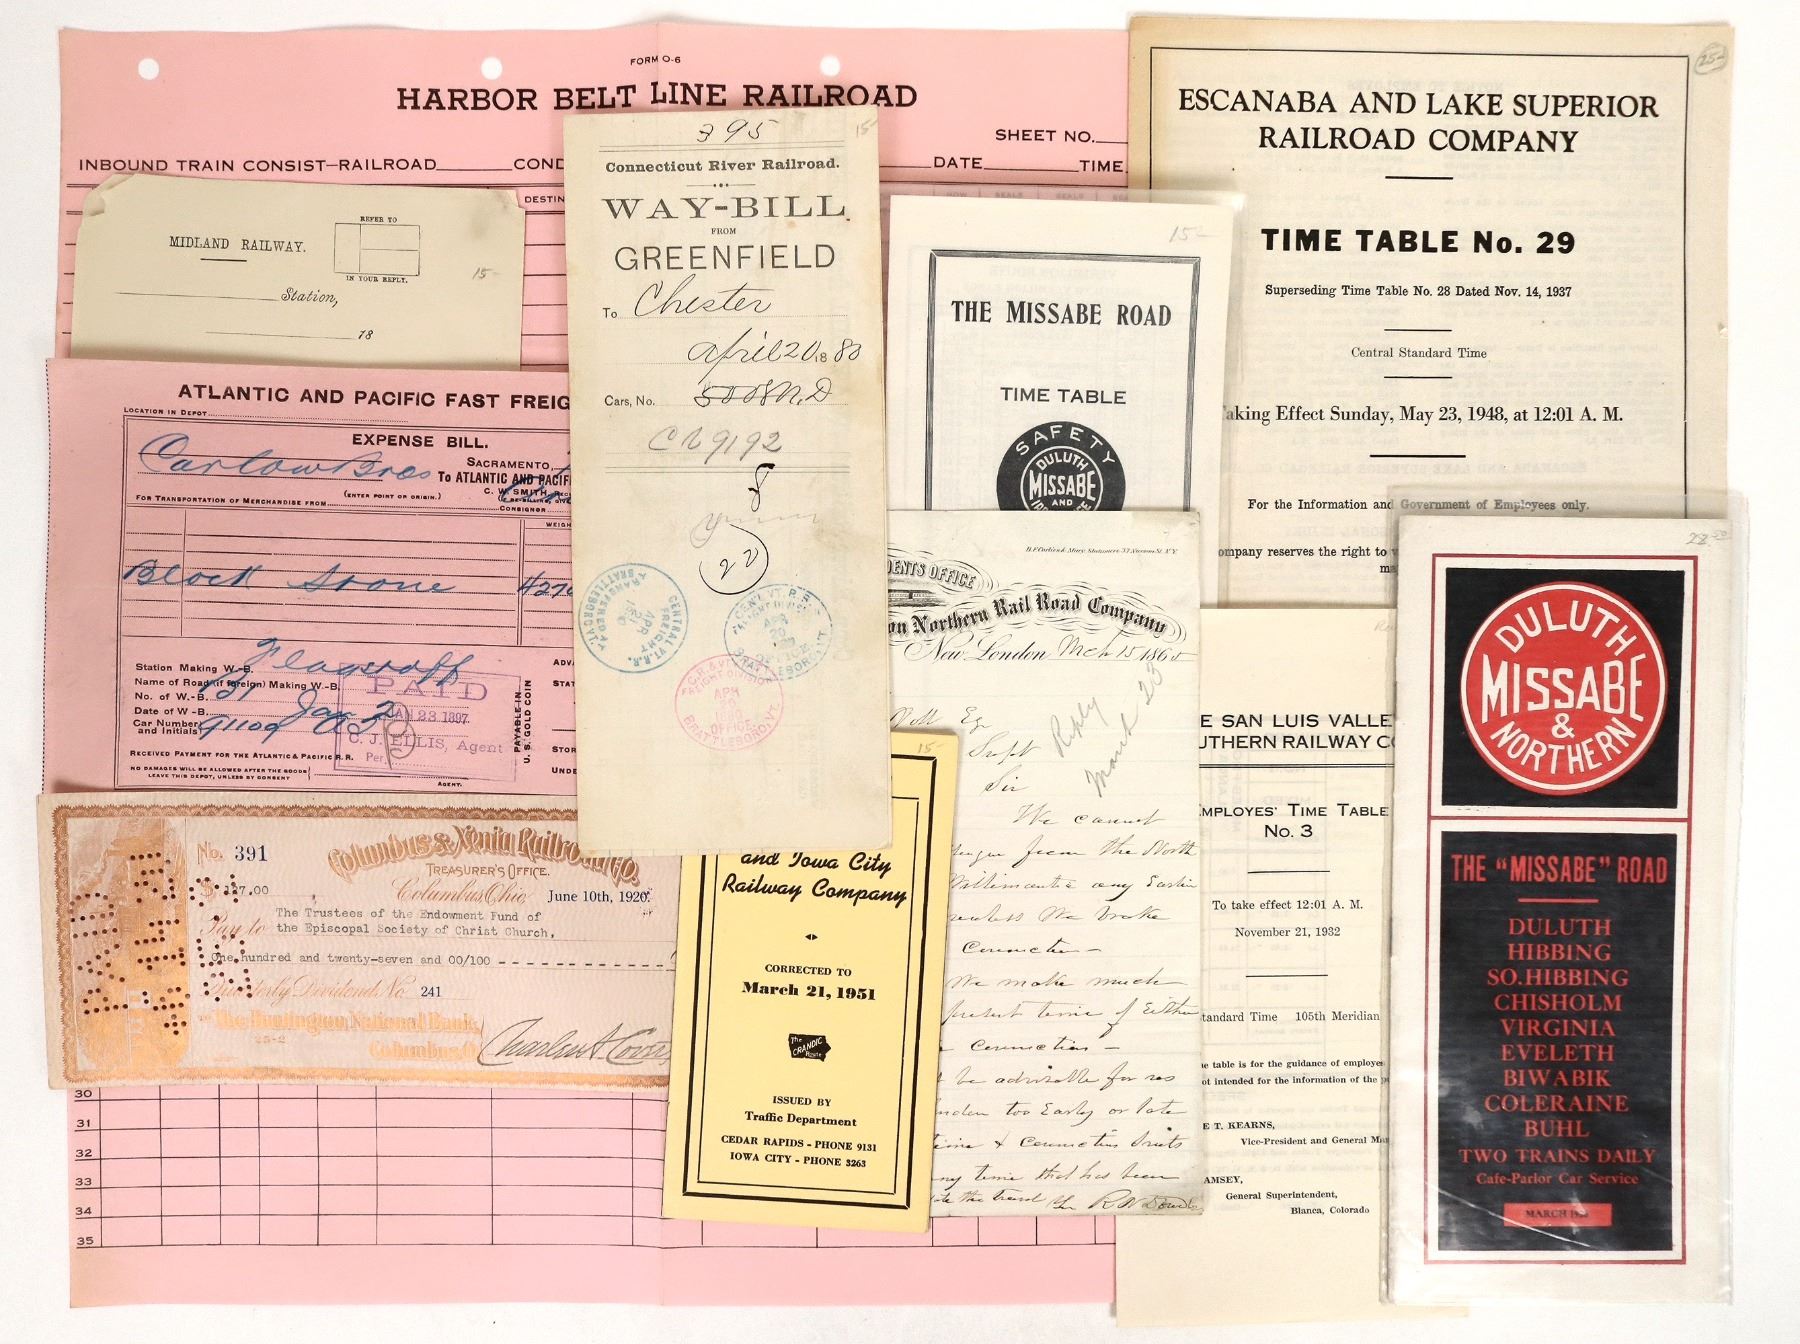 FORM O-6
HARBOR BELT LINE RAILROAD
SHEET NO.
INBOUND TRAIN CONSIST—RAILROAD
COND
DATE
TIME
DESTIN
30
31
32
33
34
35
MIDLAND RAILWAY.
REFER TO
IN YOUR REPLY.
15-
Station,
18
ATLANTIC AND PACIFIC FAST FREIG
LOCATION IN DEPOT
EXPENSE BILL.
Carlow Bros
SACRAMENTO,
To ATLANTIC AND PACIF
C. W. SMITH,
(ENTER POINT OR ORIGIN.)
FOR TRANSPORTATION OF MERCHANDISE FROM
CONSIGNOR
WEIGH
Block Stone
Station Making W.-B. Flagstaff
Name of Road (if foreign) Making W.-B.
No. of W.-B.
Date of W-B. Jan 2
Car Number and Initials
PAID
JAN 23 1897
C. J. ELLIS, Agent
Per
PAYABLE IN U. S. GOLD COIN
ADV
STAT
STOR
UNDE
RECEIVED PAYMENT FOR THE ATLANTIC & PACIFIC R. R.
NO DAMAGES WILL BE ALLOWED AFTER THE GOODS
LEAVE THIS DEPOT, UNLESS BY CONSENT
AGENT.
Columbus & Xenia Railroad Co.
TREASURER'S OFFICE.
No. 391
Columbus, Ohio, June 10th, 1920
$ 127.00
Pay to The Trustees of the Endowment Fund of
the Episcopal Society of Christ Church,
One hundred and twenty-seven and 00/100
Quarterly Dividend No 241
The Huntington National Bank,
25-2
Columbus, O.
395
15-
Connecticut River Railroad.
WAY-BILL
FROM
GREENFIELD
To Chester
April 20, 1880
Cars, No. 5008 N.D
CR 9192
8
22
CENTRAL VT. R.R.
FREIGHT
APR
TRANSFERRED AT
BRATTLEBORO, VT.
CENT. VT. R.R.
FREIGHT DIVISION
APR
20
OFFICE
BRATTLEBORO, VT.
FREIGHT DIVISION
APR
20
OFFICE
BRATTLEBORO, VT.
15-
and Iowa City
Railway Company
CORRECTED TO
March 21, 1951
The
CRANDIC
Route
ISSUED BY
Traffic Department
CEDAR RAPIDS - PHONE 9131
IOWA CITY - PHONE 3263
15-
THE MISSABE ROAD
TIME TABLE
SAFETY
DULUTH
MISSABE
AND
DENTS OFFICE
on Northern Rail Road Company
New London Mch 15 186
Reply
March 23
Supt
Sir
We cannot
from the North
Willimantic any Earlier
unless We broke
Connection —
We make much
present time of Either
Connection —
be advisable for
too Early or late
time & Connection
any time that has been
25-
ESCANABA AND LAKE SUPERIOR
RAILROAD COMPANY
TIME TABLE No. 29
Superseding Time Table No. 28 Dated Nov. 14, 1937
Central Standard Time
aking Effect Sunday, May 23, 1948, at 12:01 A. M.
For the Information and Government of Employees only.
ompany reserves the right to
E SAN LUIS VALLE
UTHERN RAILWAY CO
MPLOYES' TIME TABLE
No. 3
To take effect 12:01 A. M.
November 21, 1932
tandard Time 105th Meridian
e table is for the guidance of employes
ot intended for the information of the p
E T. KEARNS,
Vice-President and General Ma
AMSEY,
General Superintendent,
Blanca, Colorado
DULUTH
MISSABE
&
NORTHERN
THE "MISSABE" ROAD
DULUTH
HIBBING
SO. HIBBING
CHISHOLM
VIRGINIA
EVELETH
BIWABIK
COLERAINE
BUHL
TWO TRAINS DAILY
Cafe-Parlor Car Service